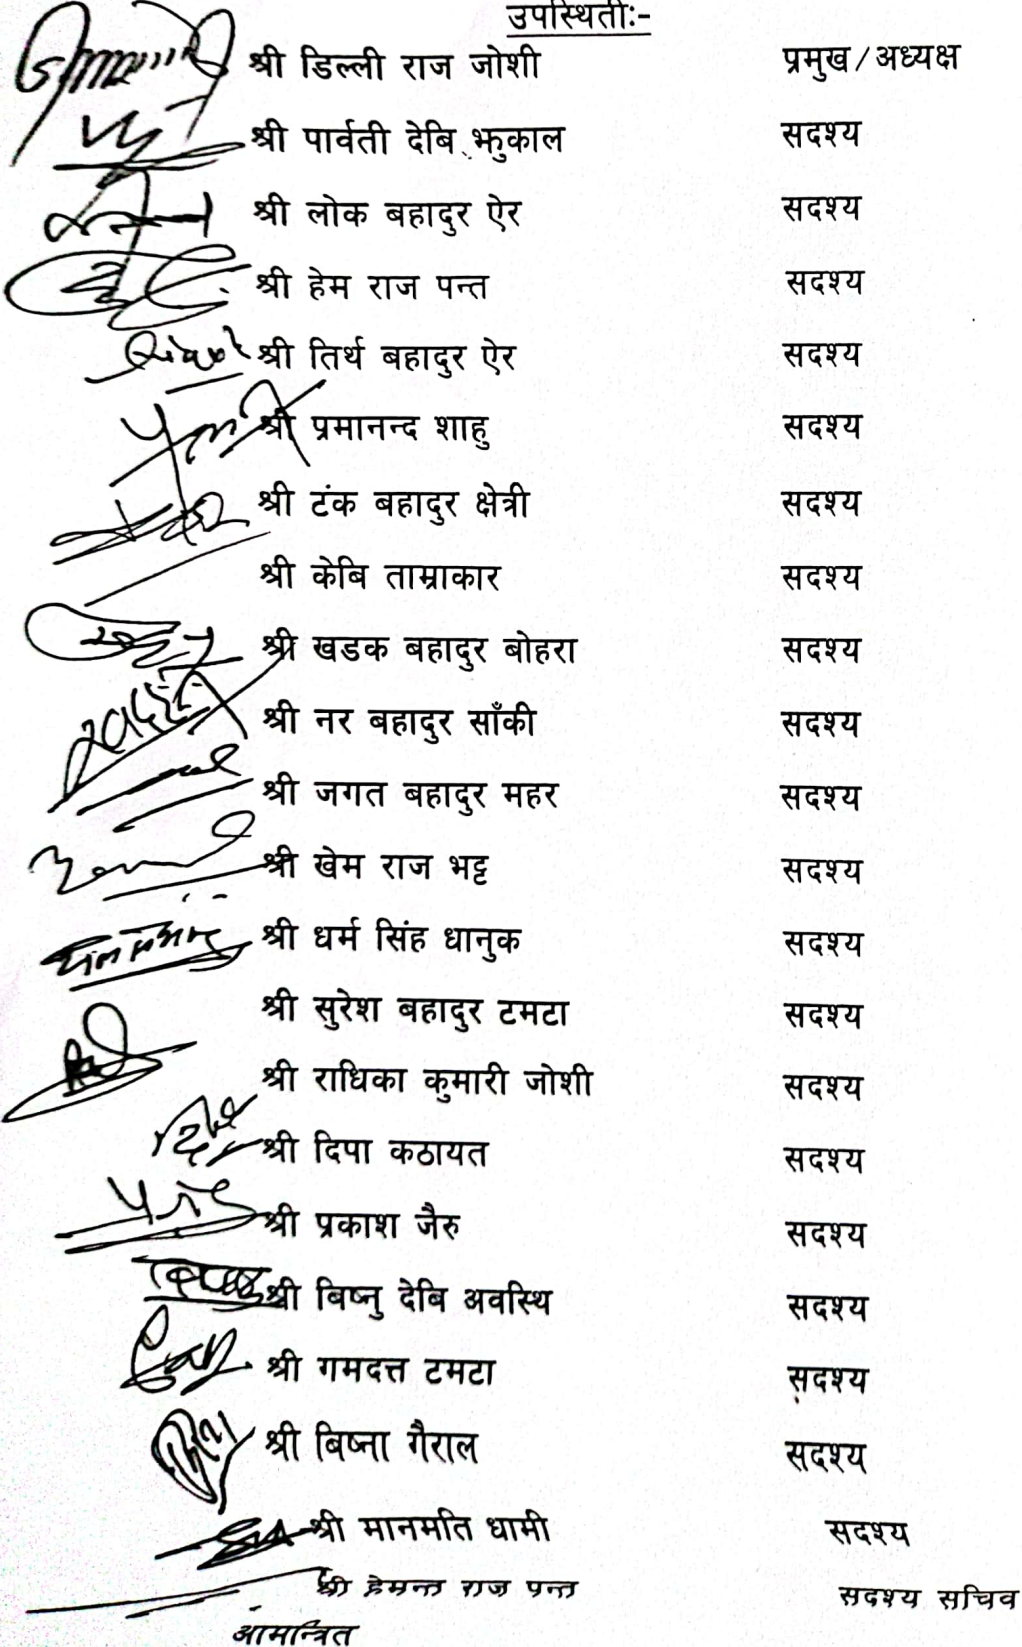 उपस्थितीः-
श्री डिल्ली राज जोशी प्रमुख/अध्यक्ष
श्री पार्वती देबि झुकाल सदश्य
श्री लोक बहादुर ऐर सदश्य
श्री हेम राज पन्त सदश्य
श्री तिर्थ बहादुर ऐर सदश्य
श्री प्रमानन्द शाहु सदश्य
श्री टंक बहादुर क्षेत्री सदश्य
श्री केबि ताम्राकार सदश्य
श्री खडक बहादुर बोहरा सदश्य
श्री नर बहादुर साँकी सदश्य
श्री जगत बहादुर महर सदश्य
श्री खेम राज भट्ट सदश्य
श्री धर्म सिंह धानुक सदश्य
श्री सुरेश बहादुर टमटा सदश्य
श्री राधिका कुमारी जोशी सदश्य
श्री दिपा कठायत सदश्य
श्री प्रकाश जैरु सदश्य
श्री बिष्नु देबि अवस्थि सदश्य
श्री गमदत्त टमटा सदश्य
श्री बिष्ना गैराल सदश्य
श्री मानमति धामी सदश्य
श्री हेमन्त राज पन्त सदश्य सचिव
आमन्त्रित